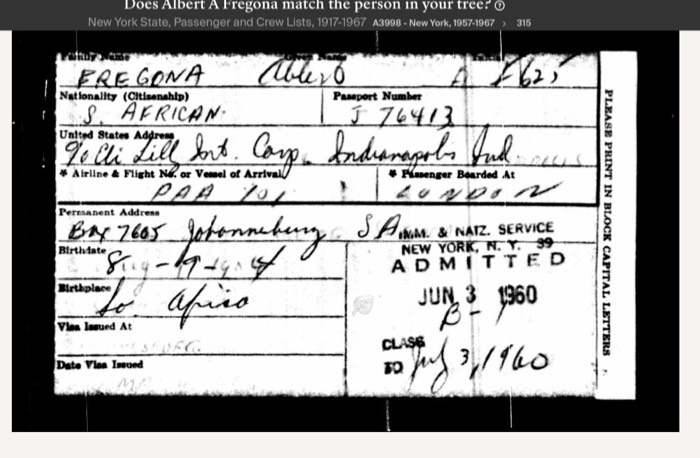 Does Albert A Fregona match the person in your tree?
New York State, Passenger and Crew Lists, 1917-1967 A3998 - New York, 1957-1967 › 315
Family Name Given Name
FREGONA A
Nationality (Citizenship) Passport Number
S. AFRICAN. J 76413
United States Address
℅ Eli Lill Int. Corp. Indianapolis Ind
* Airline & Flight No. or Vessel of Arrival * Passenger Boarded At
PAA 101 LONDON
Permanent Address
Box 7605 Johannesburg SA
IMM. & NATZ. SERVICE
NEW YORK, N. Y. 39
ADMITTED
Birthdate
Birthplace
So.
JUN 3 1960
B-
Visa Issued At
CLASS
TO July 3, 1960
Date Visa Issued
PLEASE PRINT IN BLOCK CAPITAL LETTERS